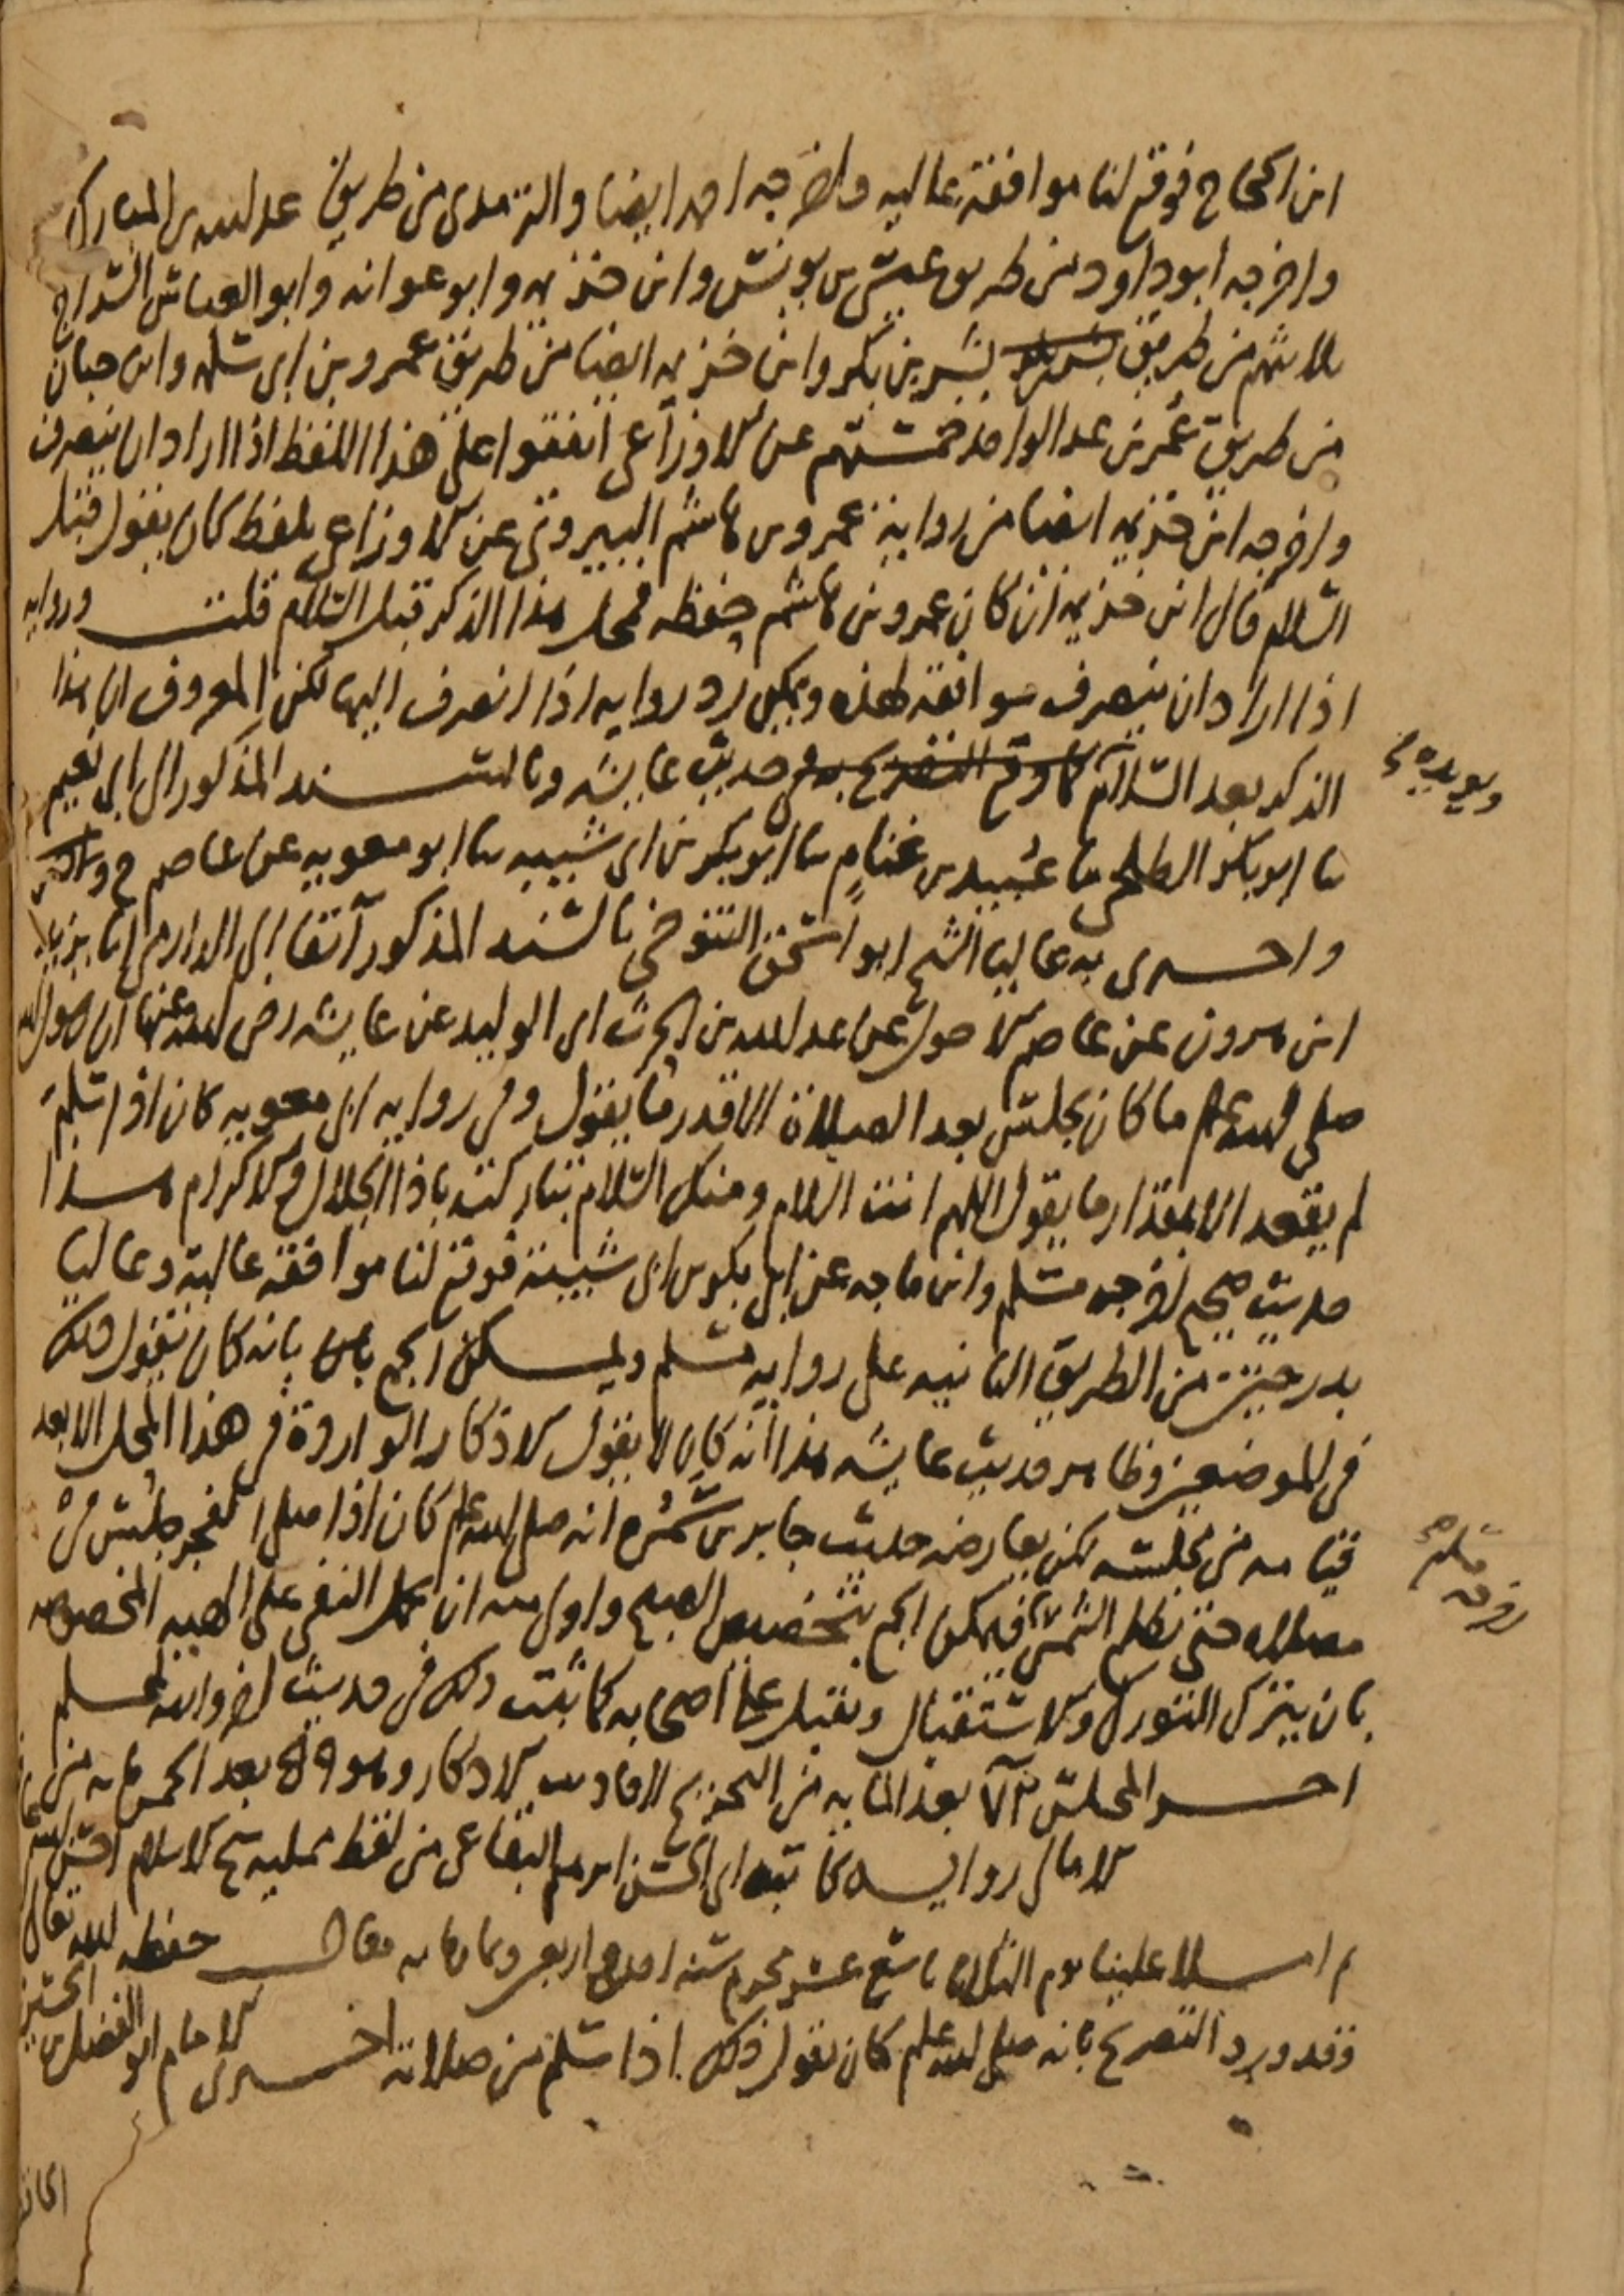 ابن الحجاج فوقع لنا موافقة عاليه واخرجه احمد ايضا والترمدى من طريق عبد الله بن المبارك
واخرجه ابو داود من طريق عيسى بن يونس وابن خزيمه وابو عوانه وابو العباس السراج
ثلاثتهم من طريق بشر بن بكر وابن خزيمه ايضا من طريق عمرو بن ابى سلمه وابن حبان
من طريق عمر بن عبد الواحد خمستهم عن الاوزاعى اتفقوا على هذا اللفظ اذا اراد ان ينصرف
واخرجه ابن خزيمه ايضا من رواية عمرو بن هاشم البيروتى عن الاوزاعى بلفظ كان يقول قبل
السلام قال ابن خزيمه ان كان عمرو بن هاشم حفظه فمحل هذا الذكر قبل السلام قلت وروايه
اذا اراد ان ينصرف موافقة لهذه ويمكن رد روايه اذا انصرف اليها لكن المعروف ان هذا
الذكر بعد السلام كما وقع التصريح به فى حديث عايشه وبالسند المذكور الى ابى نعيم
ويويده
ثنا ابو بكر الطلحى ثنا عبيد بن غنام ثنا ابو بكر بن ابى شيبه ثنا ابو معويه عن عاصم ح
واخبرنى به عاليا الشيخ ابو اسحق التنوخى بالسند المذكور آنفا الى الدارمى انا يزيد
ابن هرون عن عاصم الاحول عن عبد الله بن الحرث ابى الوليد عن عايشه رضى الله عنها ان رسول الله
صلى الله عليه وسلم ما كان يجلس بعد الصلاة الا قدر ما يقول وفى روايه ابى معويه كان اذا سلم
لم يقعد الا بمقدار ما يقول اللهم انت السلام ومنك السلام تباركت ياذا الجلال والاكرام هذا
حديث صحيح اخرجه مسلم وابن ماجه عن ابى بكر بن ابى شيبة فوقع لنا موافقة عالية وعاليا
بدرجتين من الطريق الثانيه على روايه مسلم ويمكن الجمع بانه كان يقول ذلك
فى الموضعين وظاهر حديث عايشه هذا انه كان لا يقول الاذكار الواردة فى هذا المحل الا بعد
قيامه من مجلسه لكن يعارضه حديث جابر بن سمره انه صلى الله عليه وسلم كان اذا صلى الفجر جلس فى
اخرجه مسلم
مصلاه حتى تطلع الشمس فيمكن الجمع بتخصيص الصبح واولى منه ان يحمل النفى على الهيه المخصوصه
بان يترك التورك والاستقبال ويقبل على اصحابه كما ثبت ذلك فى حديث اخر والله اعلم
اخر المجلس بعد المايه من التخريج لاحاديث الاذكار وهو بعد الخمس مايه من
الامالى روايـــه كاتبه ابى الحسن ابرهيم البقاعى من لفظ ممليه شيخ الاسلام احسن الله
ثم املا علينا يوم الثلاثا تاسع عشر محرم سنه احدى واربعين وثمانمايه فقال حفظه الله تعالى
وقد ورد التصريح بانه صلى الله عليه وسلم كان يقول ذلك اذا سلم من صلاته اخبرنى الامام ابو الفضل بن الحسين